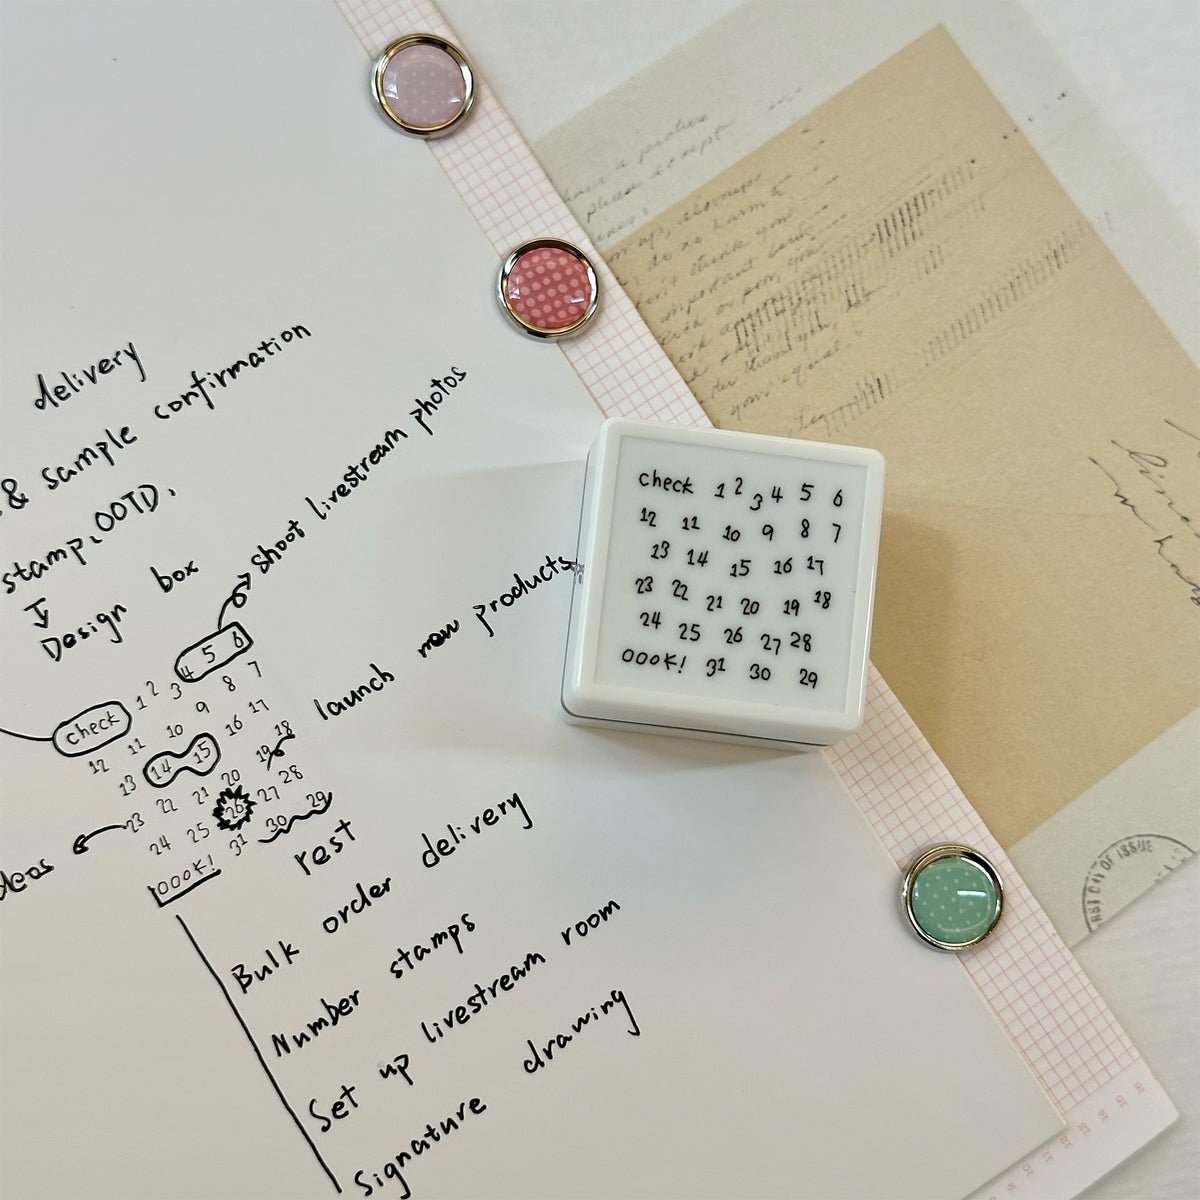 delivery
& sample confirmation
stamp, OOTD.
Design box
shoot livestream photos
check 1 2 3 4 5 6
12 11 10 9 8 7
13 14 15 16 17
23 22 21 20 19 18
24 25 26 27 28
OOOK! 31 30 29
launch new products
rest
Bulk order delivery
Number stamps
Set up livestream room
Signature drawing
check 1 2 3 4 5 6
12 11 10 9 8 7
13 14 15 16 17
23 22 21 20 19 18
24 25 26 27 28
OOOK! 31 30 29
a picture
please accept
do no harm
think you
important being
your equal
OF ISSUE